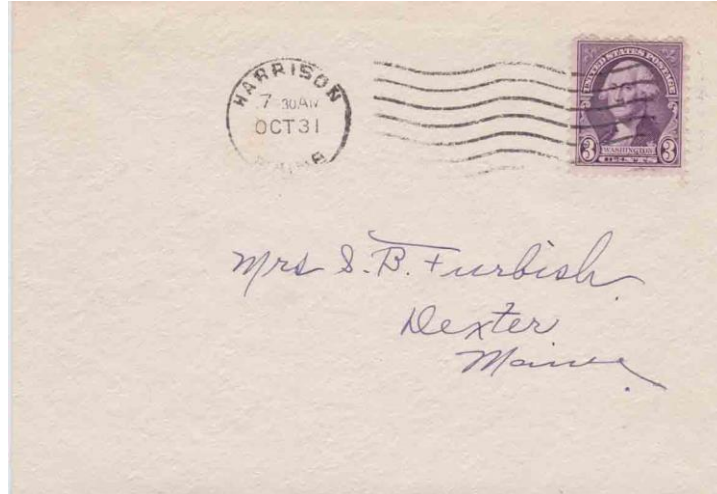 HARRISON
7 30AM
OCT 31
MAINE
UNITED STATES POSTAGE
WASHINGTON
3 CENTS 3
Mrs S. B. Furbish
Dexter
Maine